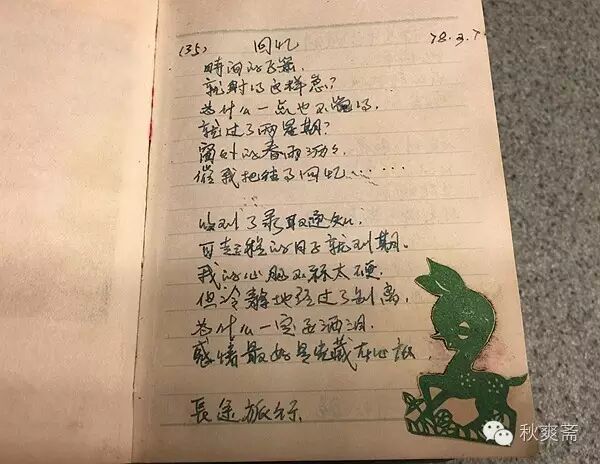 (35) 回忆 78.3.7
時间的子籙,
就射的这样急?
为什么一点也不觉得,
就过了两星期?
窗外的春雨沥沥,
催我把往事回忆……
收到了录取通知,
可起程的日子就到期。
我的心肠不算太硬,
但冷静地经过了别离,
为什么一定要洒泪,
感情最好是藏在心底,
長途旅行,
秋爽斋